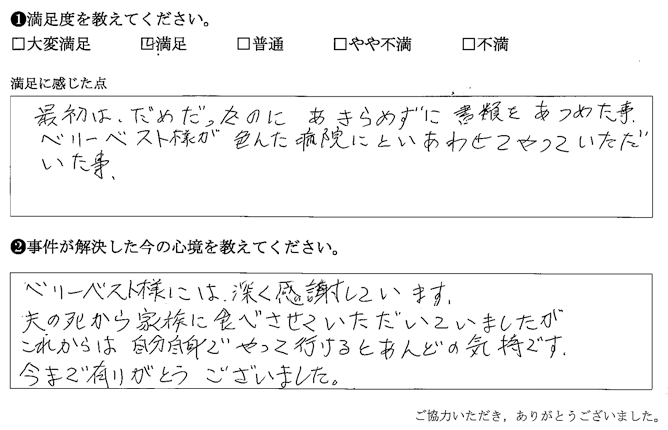 ❶満足度を教えてください。
□大変満足 ☑満足 □普通 □やや不満 □不満
満足に感じた点
最初は、だめだったのに あきらめずに 書類を あつめた事.
ベリーベスト様が 色んた病院にといあわせてやっていただ
いた事.
❷事件が解決した今の心境を教えてください。
ベリーベスト様には、深く感謝しています.
夫の死から家族に食べさせていただいていましたが
これからは 自分自身でやって行けるとあんどの気持です.
今まで有りがとう ございました。
ご協力いただき，ありがとうございました。